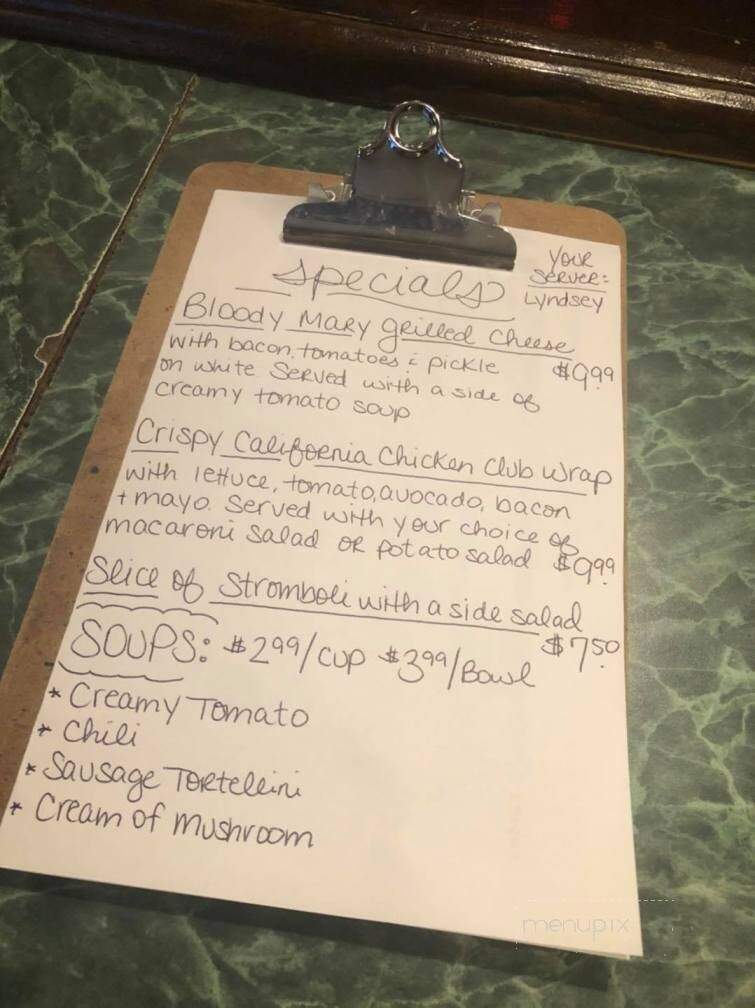 Specials
Your
Server:
Lyndsey
Bloody Mary grilled cheese
with bacon, tomatoes & pickle $9.99
on white served with a side of
creamy tomato soup
Crispy California Chicken Club Wrap
with lettuce, tomato, avocado, bacon
+ mayo. Served with your choice of
macaroni salad or potato salad $9.99
Slice of Stromboli with a side salad
$7.50
SOUPS: $2.99/cup $3.99/Bowl
* Creamy Tomato
* Chili
* Sausage Tortellini
* Cream of Mushroom
menupix